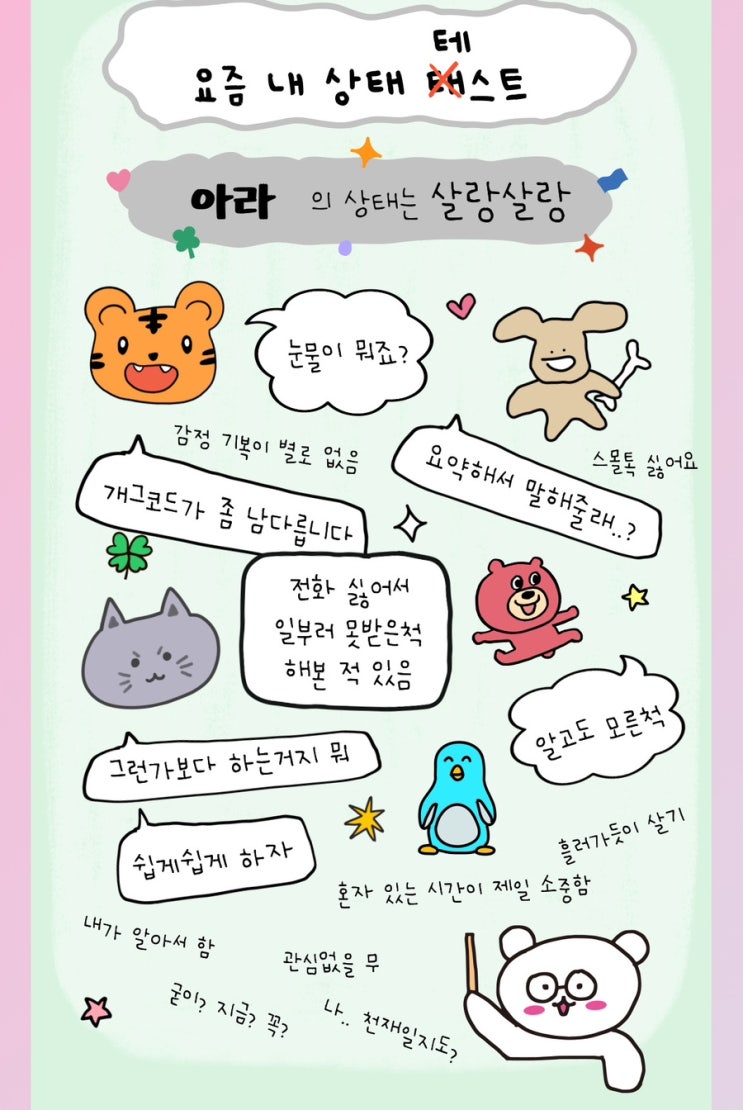 테
요즘 내 상태 태스트
아라 의 상태는 살랑살랑
눈물이 뭐죠?
감정 기복이 별로 없음
요약해서 말해줄래..?
스몰톡 싫어요
개그코드가 좀 남다릅니다
전화 싫어서
일부러 못받은척
해본 적 있음
알고도 모른척
그런가보다 하는거지 뭐
쉽게쉽게 하자
흘러가듯이 살기
혼자 있는 시간이 제일 소중함
내가 알아서 함
관심없을 무
굳이? 지금? 꼭?
나.. 천재일지도?